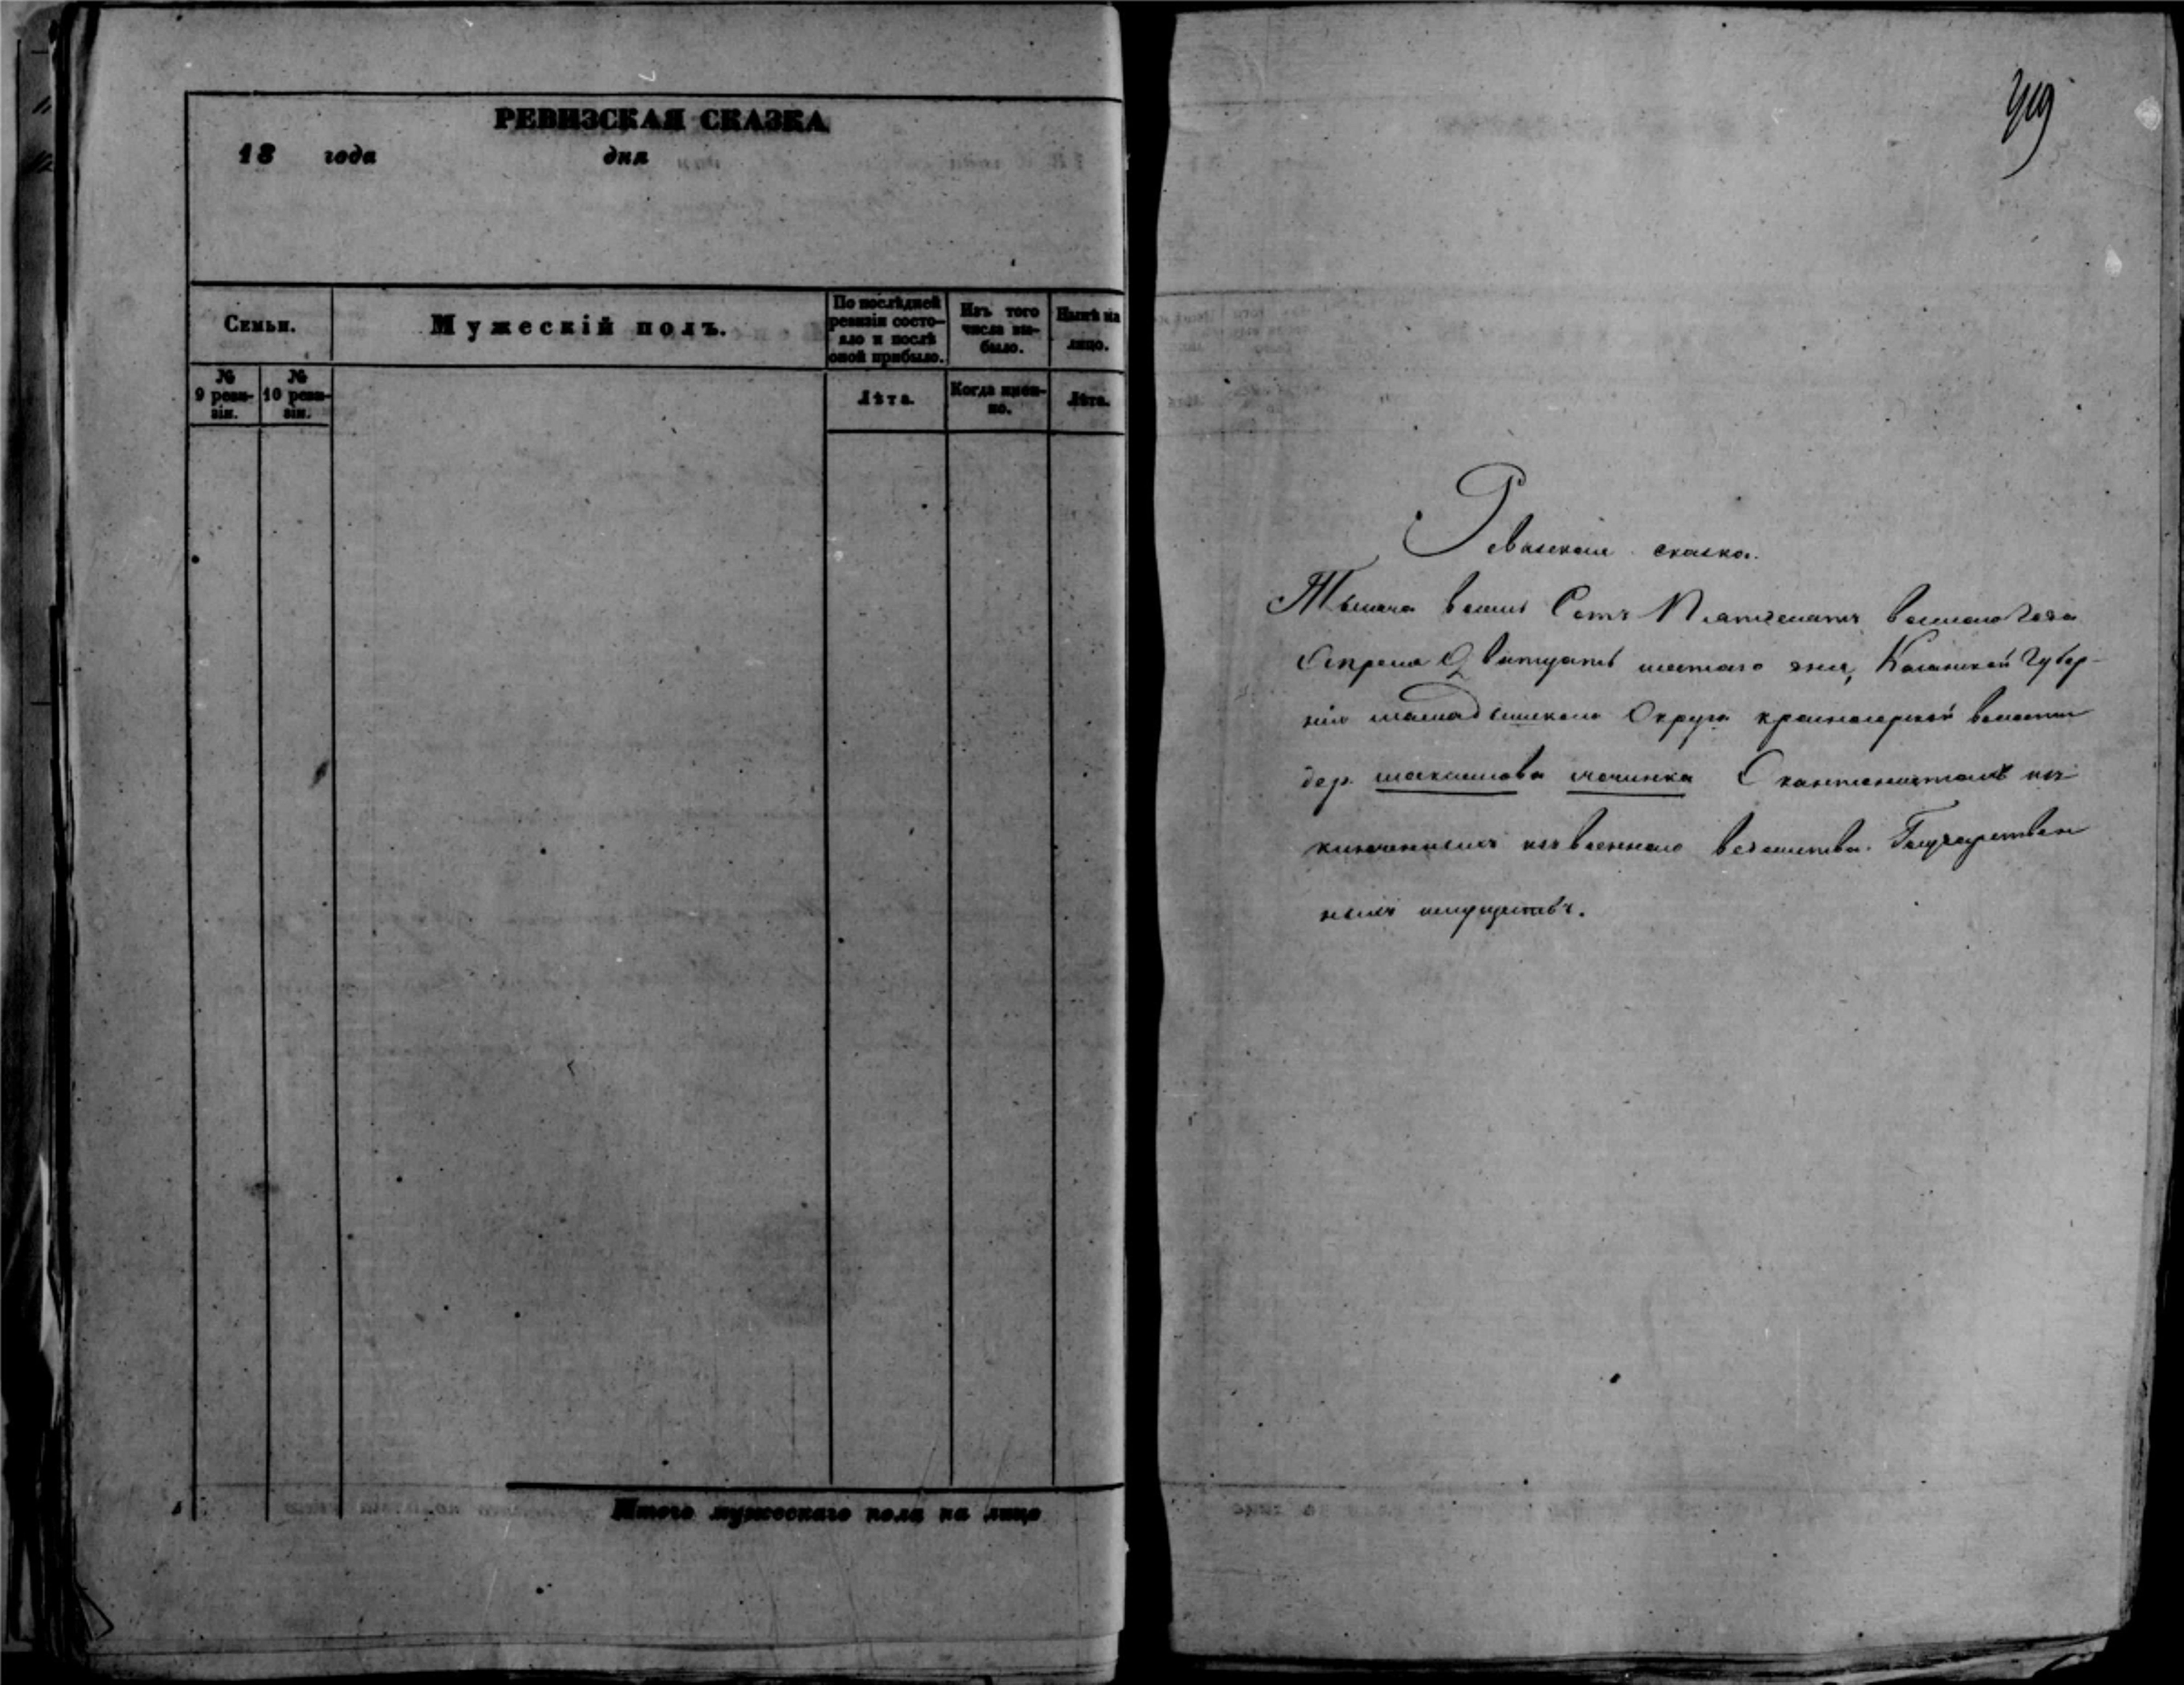 РЕВИЗСКАЯ СКАЗКА
18 года дня
Семьи.
Мужескій полъ.
По послѣдней ревизіи состо-
яло и послѣ оной прибыло.
Изъ того числа вы-
было.
Нынѣ на лицо.
№ 9 реви-
зіи.
№ 10 реви-
зіи.
Лѣта.
Когда имен-
но.
Лѣта.
Итого мужескаго пола на лицо
Ревизская сказка.
Тысяча восемь Сотъ Пятдесятъ восьмаго Года
Апреля Дватцать шестаго дня, Казанской Губер-
ніи мамадышскаго Округа красногорской волости
дер. починка О кантонистахъ ис-
ключенныхъ изъ военнаго ведомства Государствен
ныхъ имуществъ.